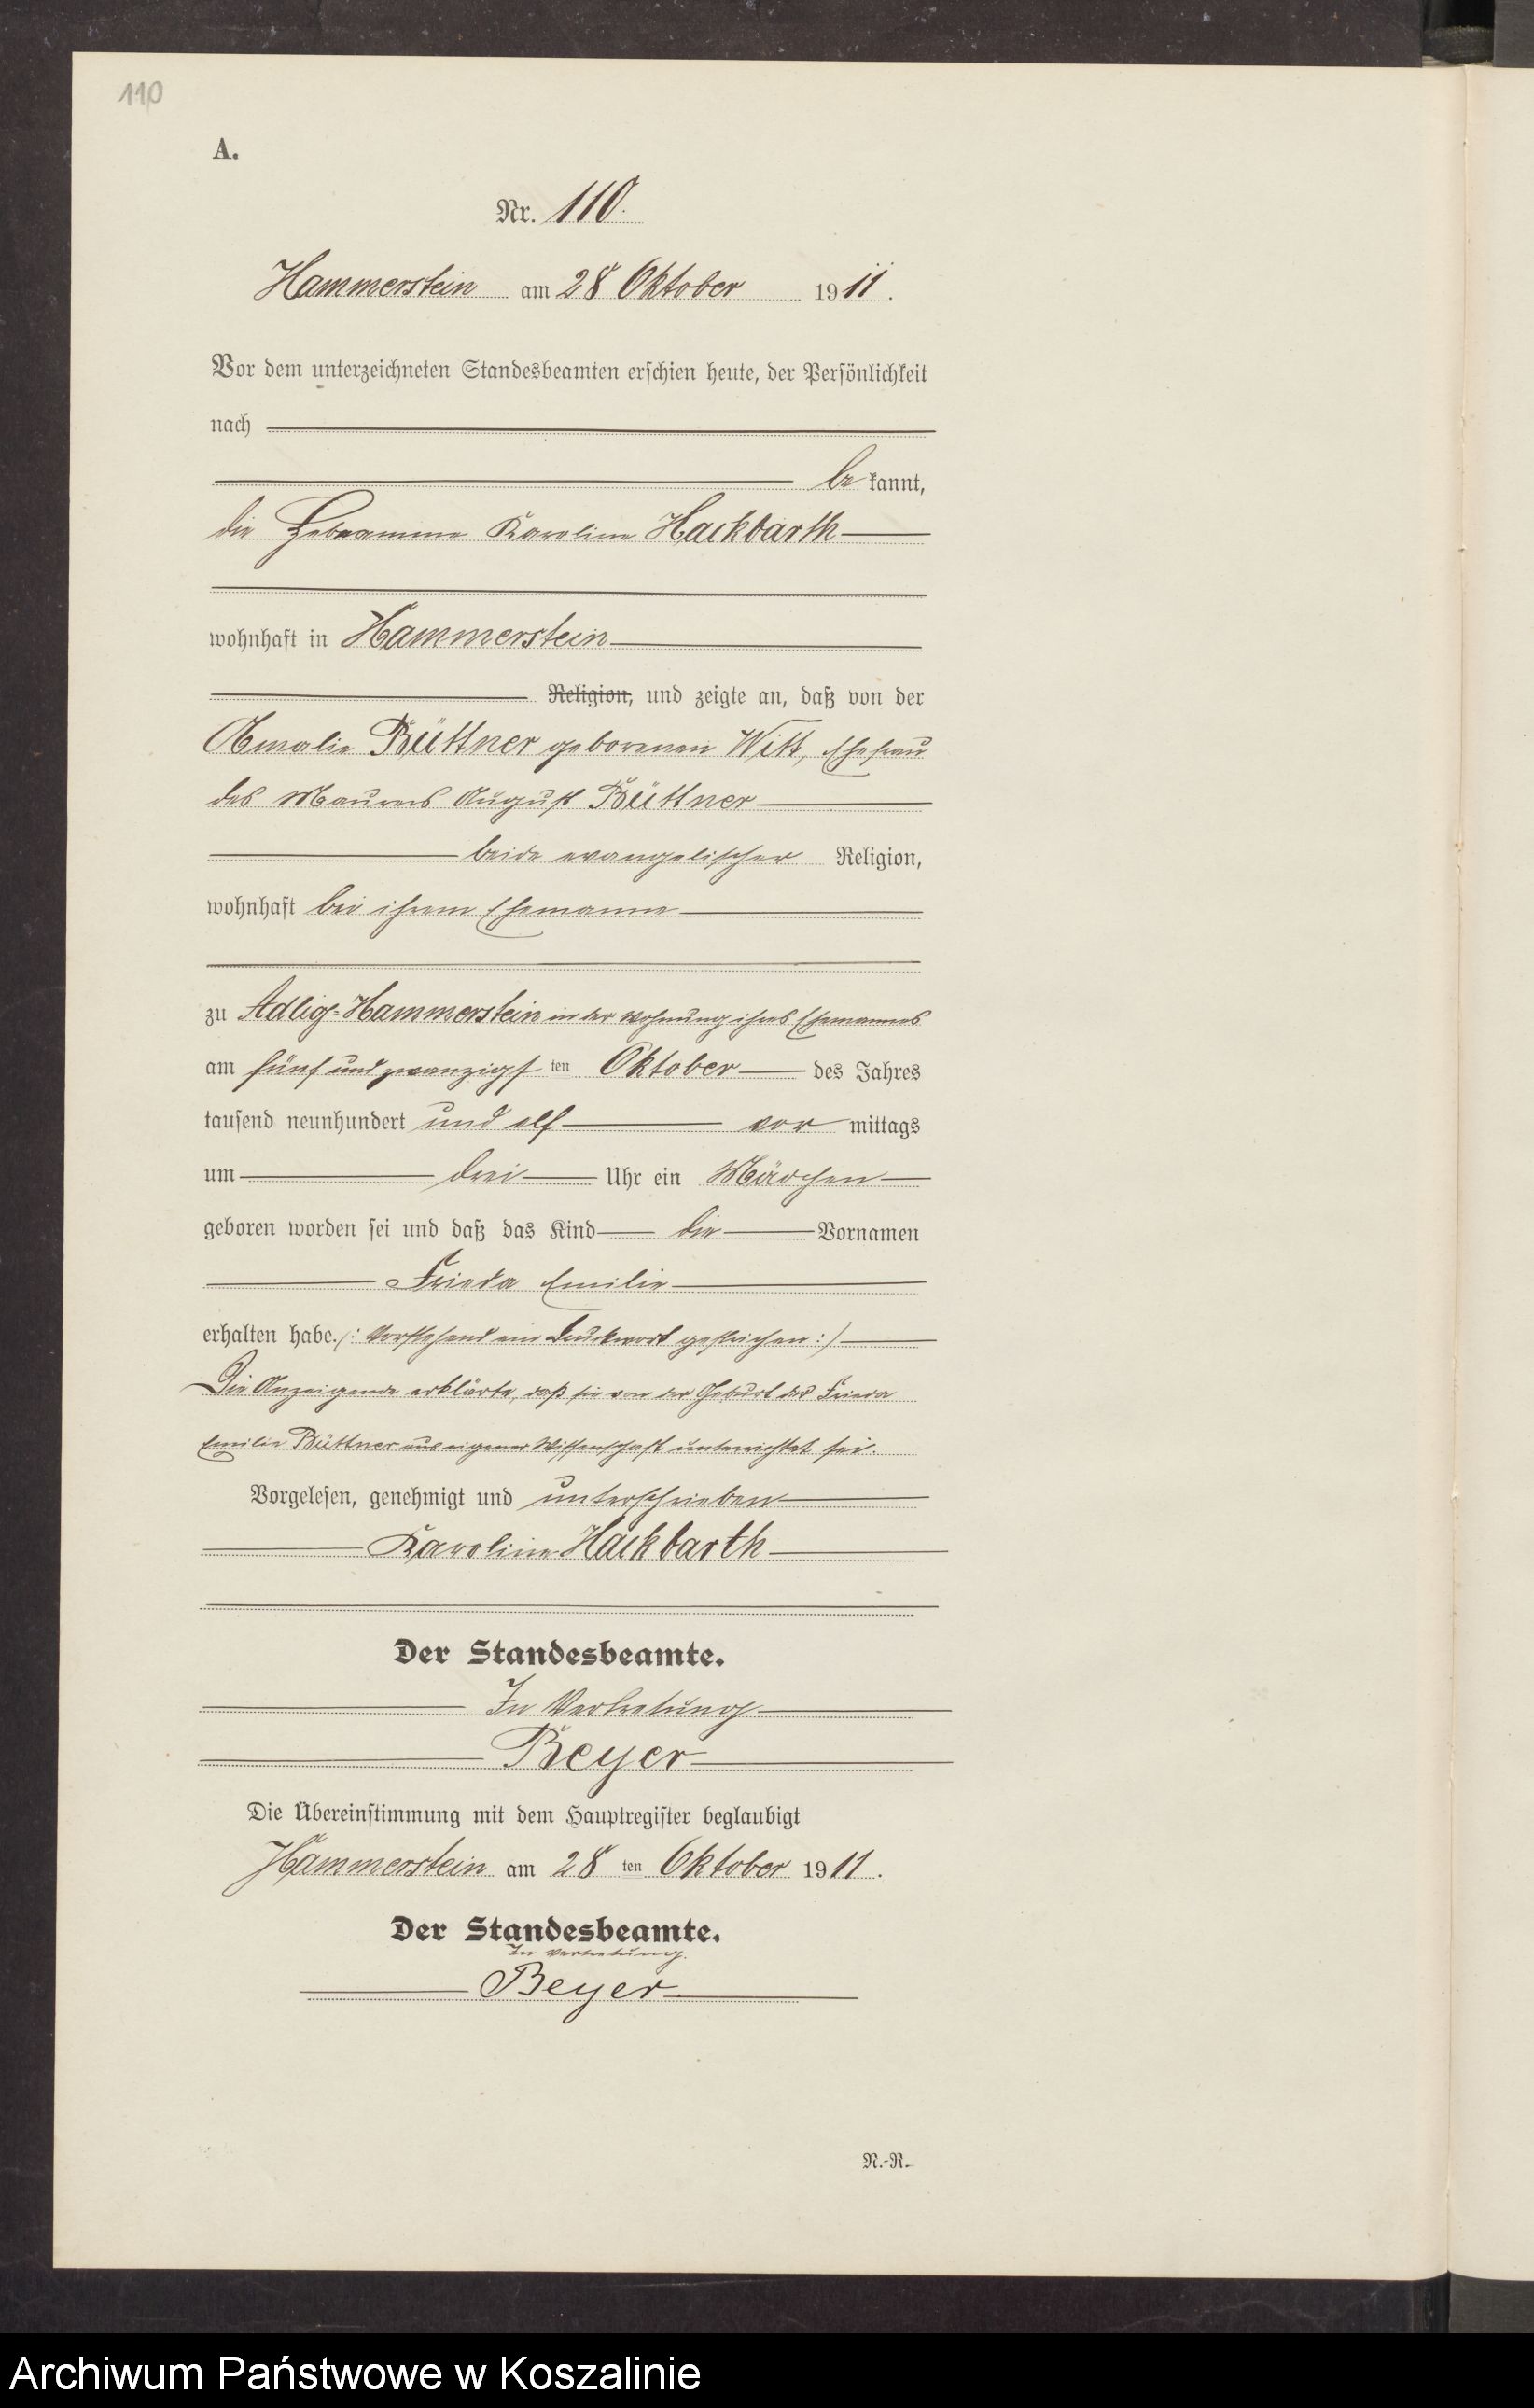 110
A.
Nr. 110.
Hammerstein am 28 Oktober 1911.
Vor dem unterzeichneten Standesbeamten erschien heute, der Persönlichkeit
nach
be kannt,
die Hebeamme Karoline Hackbarth
wohnhaft in Hammerstein
Religion, und zeigte an, daß von der
Amalie Büttner geborenen Witt, Ehefrau
des Maurers August Büttner
beide evangelischer Religion,
wohnhaft bei ihrem Ehemanne
zu Adlig-Hammerstein in der Wohnung ihres Ehemannes
am fünf und zwanzigsten Oktober des Jahres
tausend neunhundert und elf vor mittags
um drei Uhr ein Mädchen
geboren worden sei und daß das Kind die Vornamen
Frieda Emilie
erhalten habe. (: Vorstehend ein Druckwort gestrichen :)
Die Anzeigende erklärte, daß sie von der Geburt der Frieda
Emilie Büttner aus eigener Wissenschaft unterrichtet sei.
Vorgelesen, genehmigt und unterschrieben
Karoline Hackbarth
Der Standesbeamte.
In Vertretung
Beyer
Die Übereinstimmung mit dem Hauptregister beglaubigt
Hammerstein am 28 ten Oktober 1911.
Der Standesbeamte.
In Vertretung.
Beyer
N.-R.
Archiwum Państwowe w Koszalinie